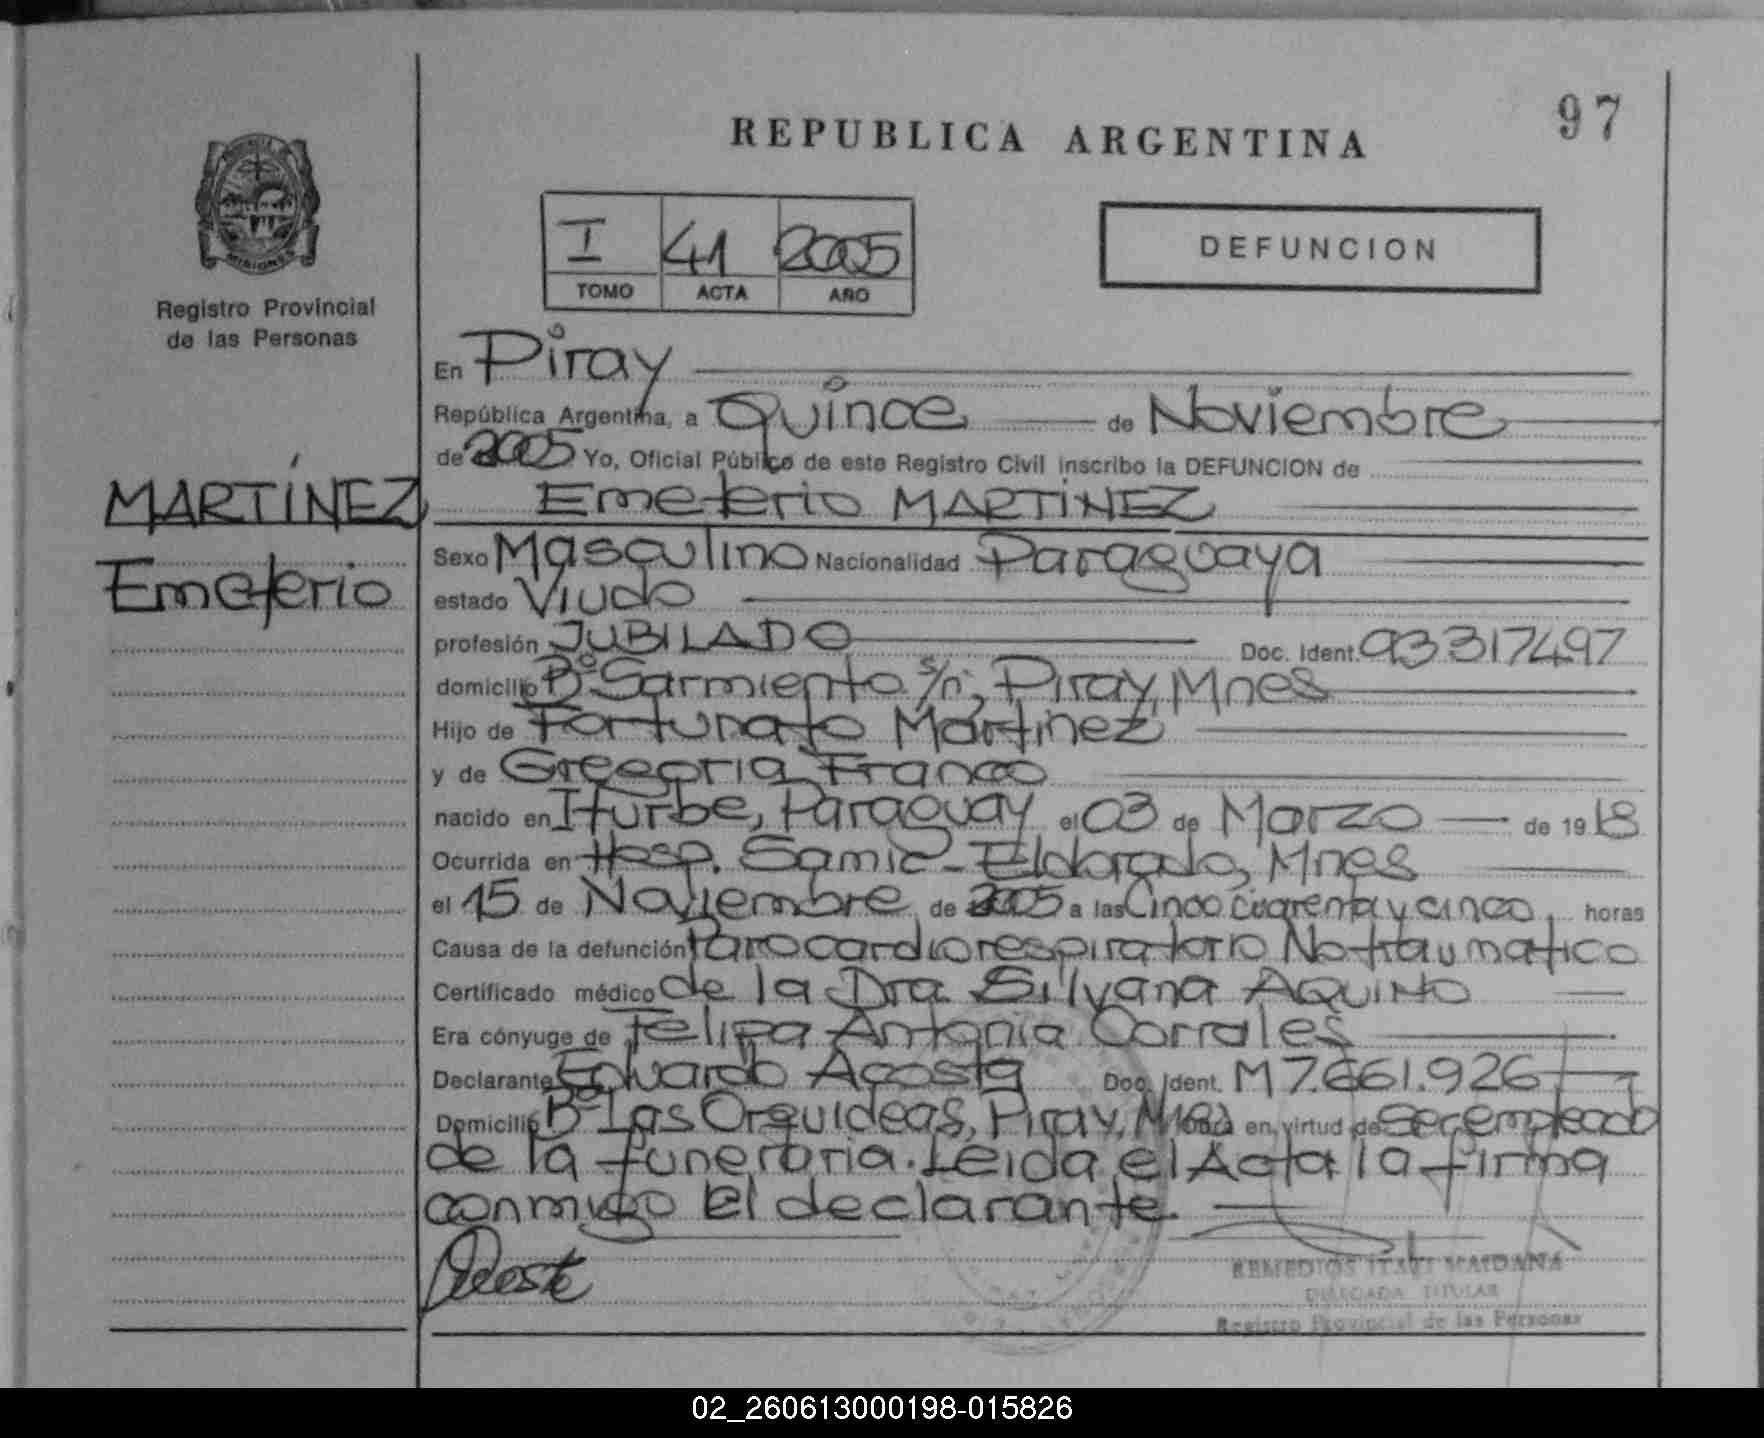 97
REPUBLICA ARGENTINA
MISIONES
Registro Provincial
de las Personas
I 41 2005
TOMO ACTA AÑO
DEFUNCION
En Piray
República Argentina, a Quince de Noviembre
de 2005 Yo, Oficial Público de este Registro Civil inscribo la DEFUNCION de
MARTÍNEZ
Emeterio
Emeterio MARTÍNEZ
Sexo Masculino Nacionalidad Paraguaya
estado Viudo
profesión JUBILADO Doc. Ident. 93317497
domicilio Bº Sarmiento s/n, Piray, Mnes
Hijo de Fortunato Martínez
y de Gregoria Franco
nacido en Iturbe, Paraguay el 03 de Marzo de 1918
Ocurrida en Hosp. Samic - Eldorado, Mnes
el 15 de Noviembre de 2005 a las Cinco cuarenta y cinco horas
Causa de la defunción Paro cardiorespiratorio No traumatico
Certificado médico de la Dra. Silvana AQUINO
Era cónyuge de Felipa Antonia Corrales
Declarante Eduardo Acosta Doc. Ident. M 7.661.926
Domicilio Bº Las Orquideas, Piray, Mnes en virtud de ser empleado
de la funeraria. Leida el Acta la firma
conmigo El declarante.
REMEDIOS ITATI MAIDANA
DELEGADA TITULAR
Registro Provincial de las Personas
02_260613000198-015826